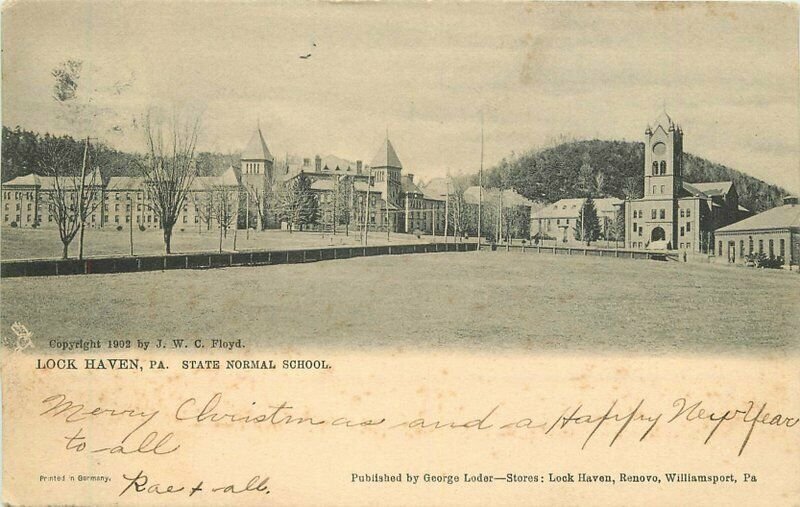 Copyright 1902 by J. W. C. Floyd.
LOCK HAVEN, PA. STATE NORMAL SCHOOL.
Merry Christmas and a Happy New Year
to all
Printed in Germany.
Rae + all.
Published by George Loder—Stores: Lock Haven, Renovo, Williamsport, Pa